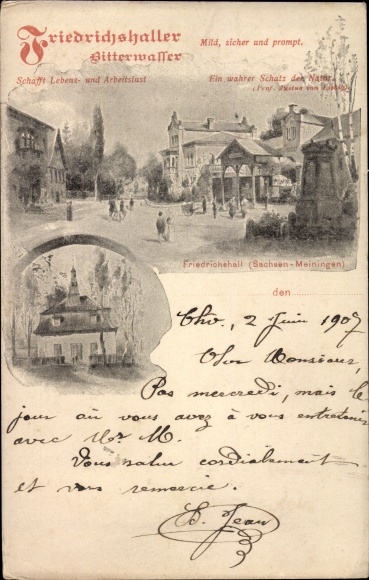 Friedrichshaller
Bitterwasser
Mild, sicher und prompt.
Schafft Lebens- und Arbeitslust
Ein wahrer Schatz der Natur.
(Prof. Justus von Liebig)
Friedrichshall (Sachsen-Meiningen)
den
2 Juin 1907
Monsieur,
Pas mercredi, mais le
jour où vous avez à vous entretenir
avec Mr M.
Vous salue cordialement
et vous remercie.
Jean